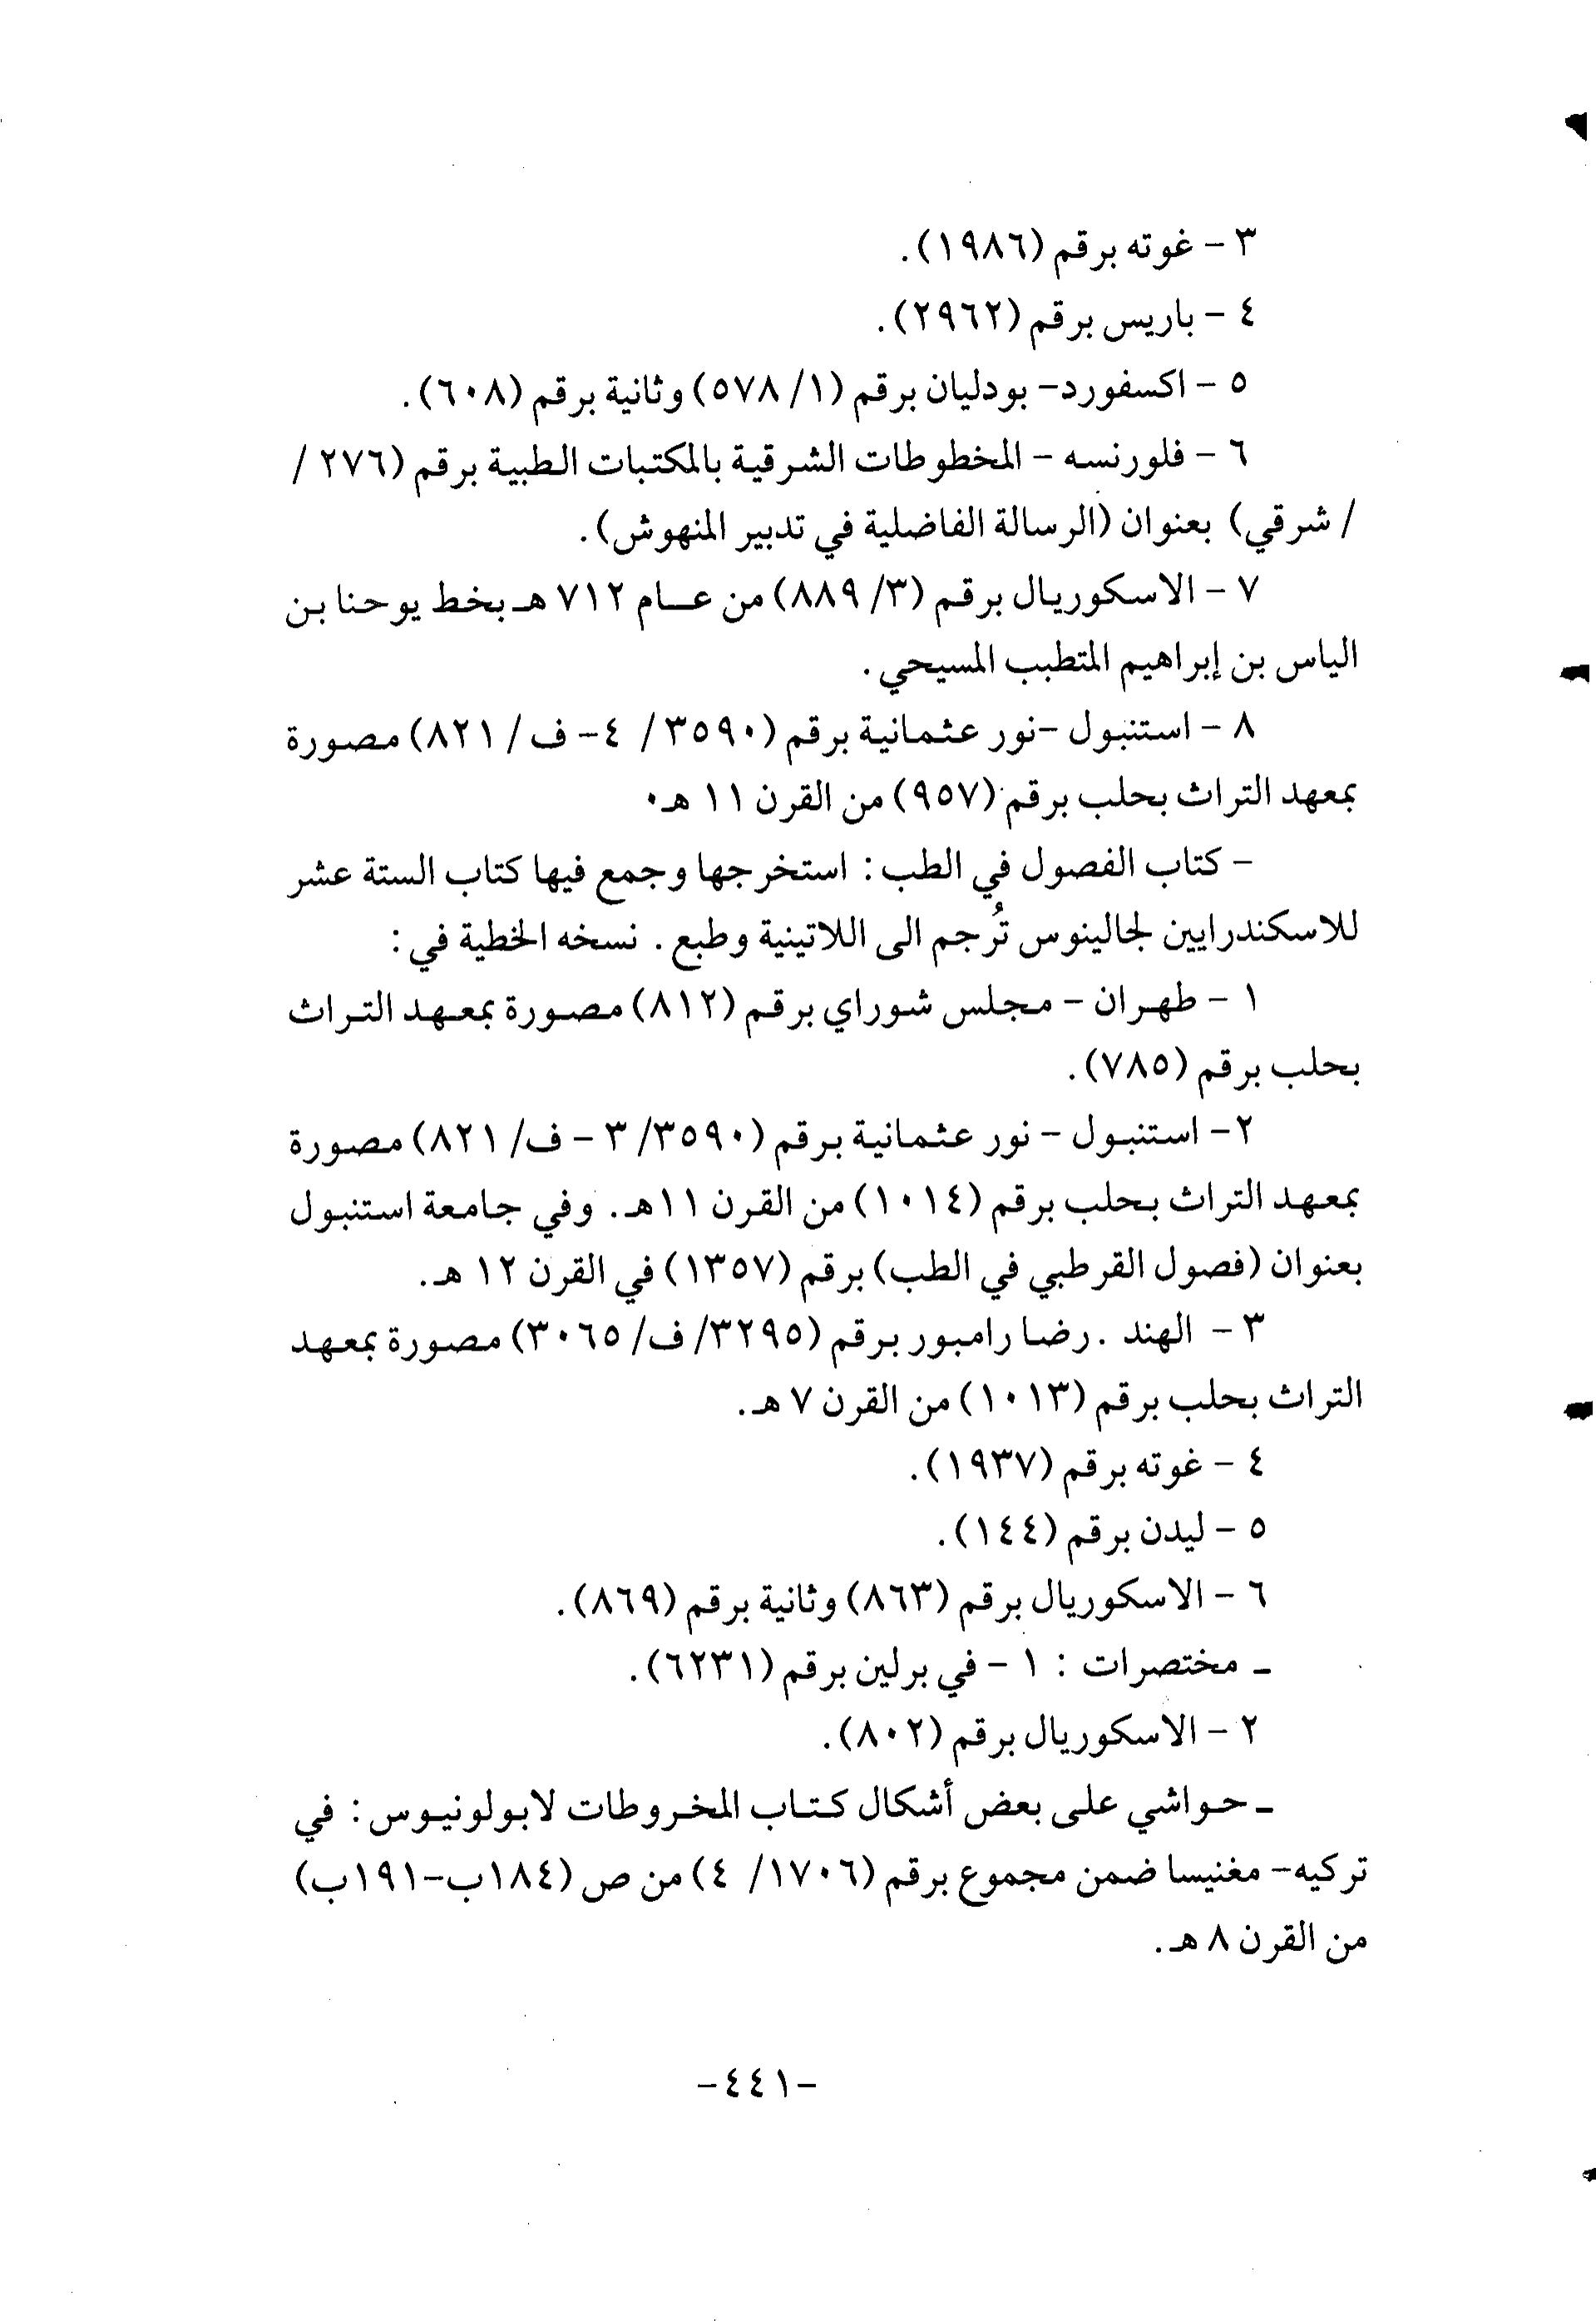 ٣ - غوته برقم (١٩٨٦).
٤ - باريس برقم (٢٩٦٢).
٥ - اكسفورد- بودليان برقم (١/ ٥٧٨) وثانية برقم (٦٠٨).
٦ - فلورنسه - المخطوطات الشرقية بالمكتبات الطبية برقم (٢٧٦ /
/ شرقي) بعنوان (الرسالة الفاضلية في تدبير المنهوش).
٧ - الاسكوريال برقم (٣/ ٨٨٩) من عام ٧١٢ هـ بخط يوحنا بن
الياس بن إبراهيم المتطبب المسيحي.
٨ - استنبول -نور عثمانية برقم (٣٥٩٠/ ٤- ف/ ٨٢١) مصورة
بمعهد التراث بحلب برقم (٩٥٧) من القرن ١١ هـ٠
- كتاب الفصول في الطب: استخرجها وجمع فيها كتاب الستة عشر
للاسكندرايين لجالينوس تُرجم الى اللاتينية وطبع. نسخه الخطية في:
١ - طهران - مجلس شوراي برقم (٨١٢) مصورة بمعهد التراث
بحلب برقم (٧٨٥).
٢- استنبول - نور عثمانية برقم (٣٥٩٠/ ٣ - ف/ ٨٢١) مصورة
بمعهد التراث بحلب برقم (١٠١٤) من القرن ١١هـ. وفي جامعة استنبول
بعنوان (فصول القرطبي في الطب) برقم (١٣٥٧) في القرن ١٢ هـ.
٣ - الهند .رضا رامبور برقم (٣٢٩٥/ ف/ ٣٠٦٥) مصورة بمعهد
التراث بحلب برقم (١٠١٣) من القرن ٧ هـ.
٤ - غوته برقم (١٩٣٧).
٥ - ليدن برقم (١٤٤).
٦ - الاسكوريال برقم (٨٦٣) وثانية برقم (٨٦٩).
ـ مختصرات : ١ - في برلين برقم (٦٢٣١).
٢ - الاسكوريال برقم (٨٠٢).
ـ حواشي على بعض أشكال كتاب المخروطات لابولونيوس: في
تركيه- مغنيسا ضمن مجموع برقم (١٧٠٦/ ٤) من ص (١٨٤ب-١٩١ب)
من القرن ٨ هـ.
-٤٤١-